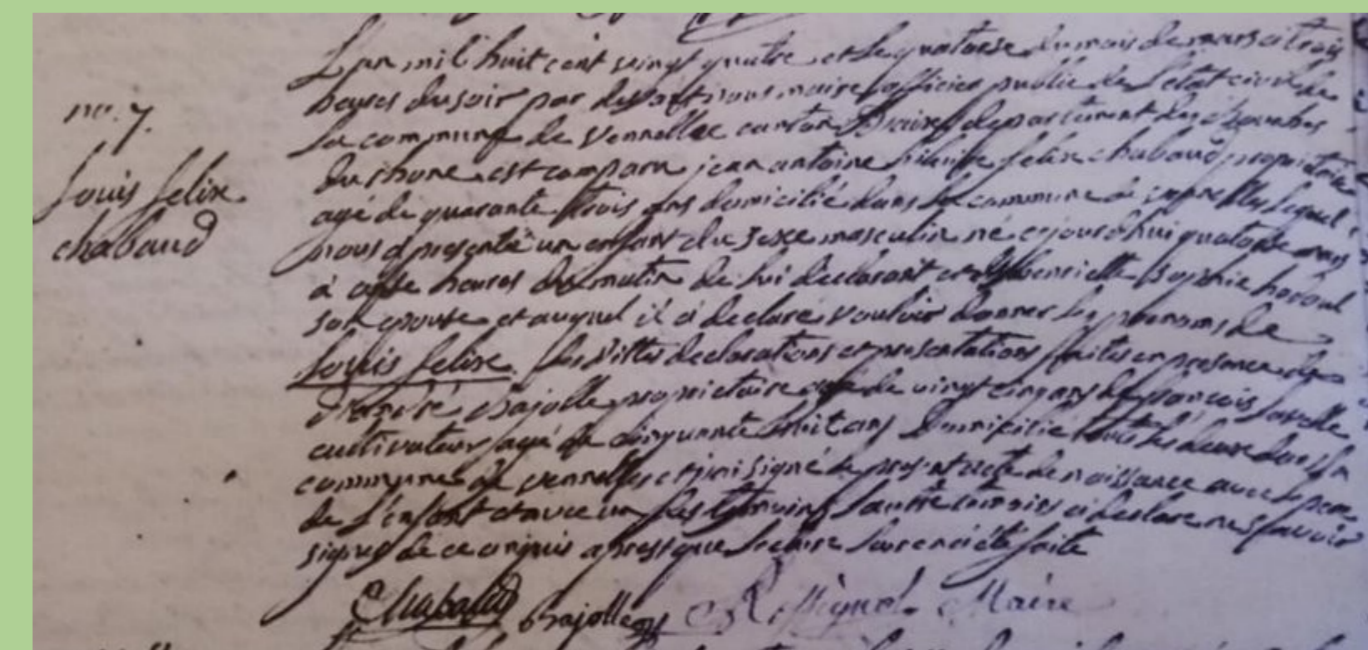 no. 7.
Louis felix
chabaud
L'an mil huit cent vingt quatre et le quatorse du mois de mars a trois
heures du soir par devant nous maire officier public de l'état civil de
la commune de vennelles canton d'aix departement des Bouches
du rhone est comparu jean antoine felix chabaud propriétaire
agé de quarante trois ans domicilié dans la commune de vennelles lequel
nous a presenté un enfant du sexe masculin né ce jourd'hui quatorse mars
à heures du matin de lui déclarant et de henriette Sophie
son epouse et auquel il a declaré vouloir donner les prenoms de
Louis felix. Les dittes declarations et presentations faites en presence de
propriétaire agé de vingt cinq ans de françois
cultivateur agé de cinquante huit ans domicilié tous les deux dans la
commune de vennelles et ont signé le present acte de naissance avec le pere
de l'enfant et avec un des temoins l'autre temoin a declaré ne sçavoir
signer de ce enquis apres que lecture leur en a été faite
Chabaud Maire